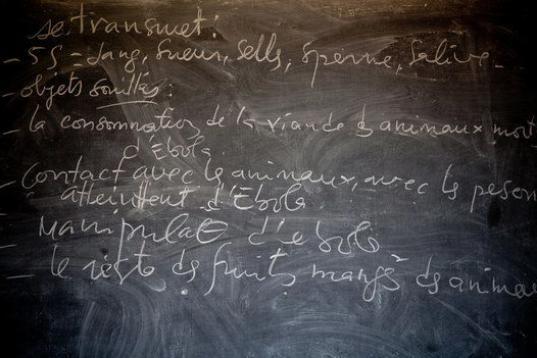 se transmet :
- 5 S = Sang, Sueur, Sells, Sperme, Salive -
- objets souillés :
- la consommation de la viande d animaux mort
d'Ebola.
- Contact avec les animaux, avec les person
atteintent d'Ebola
- Manipulat d'ebola
- le reste des fruits mangés ds anima